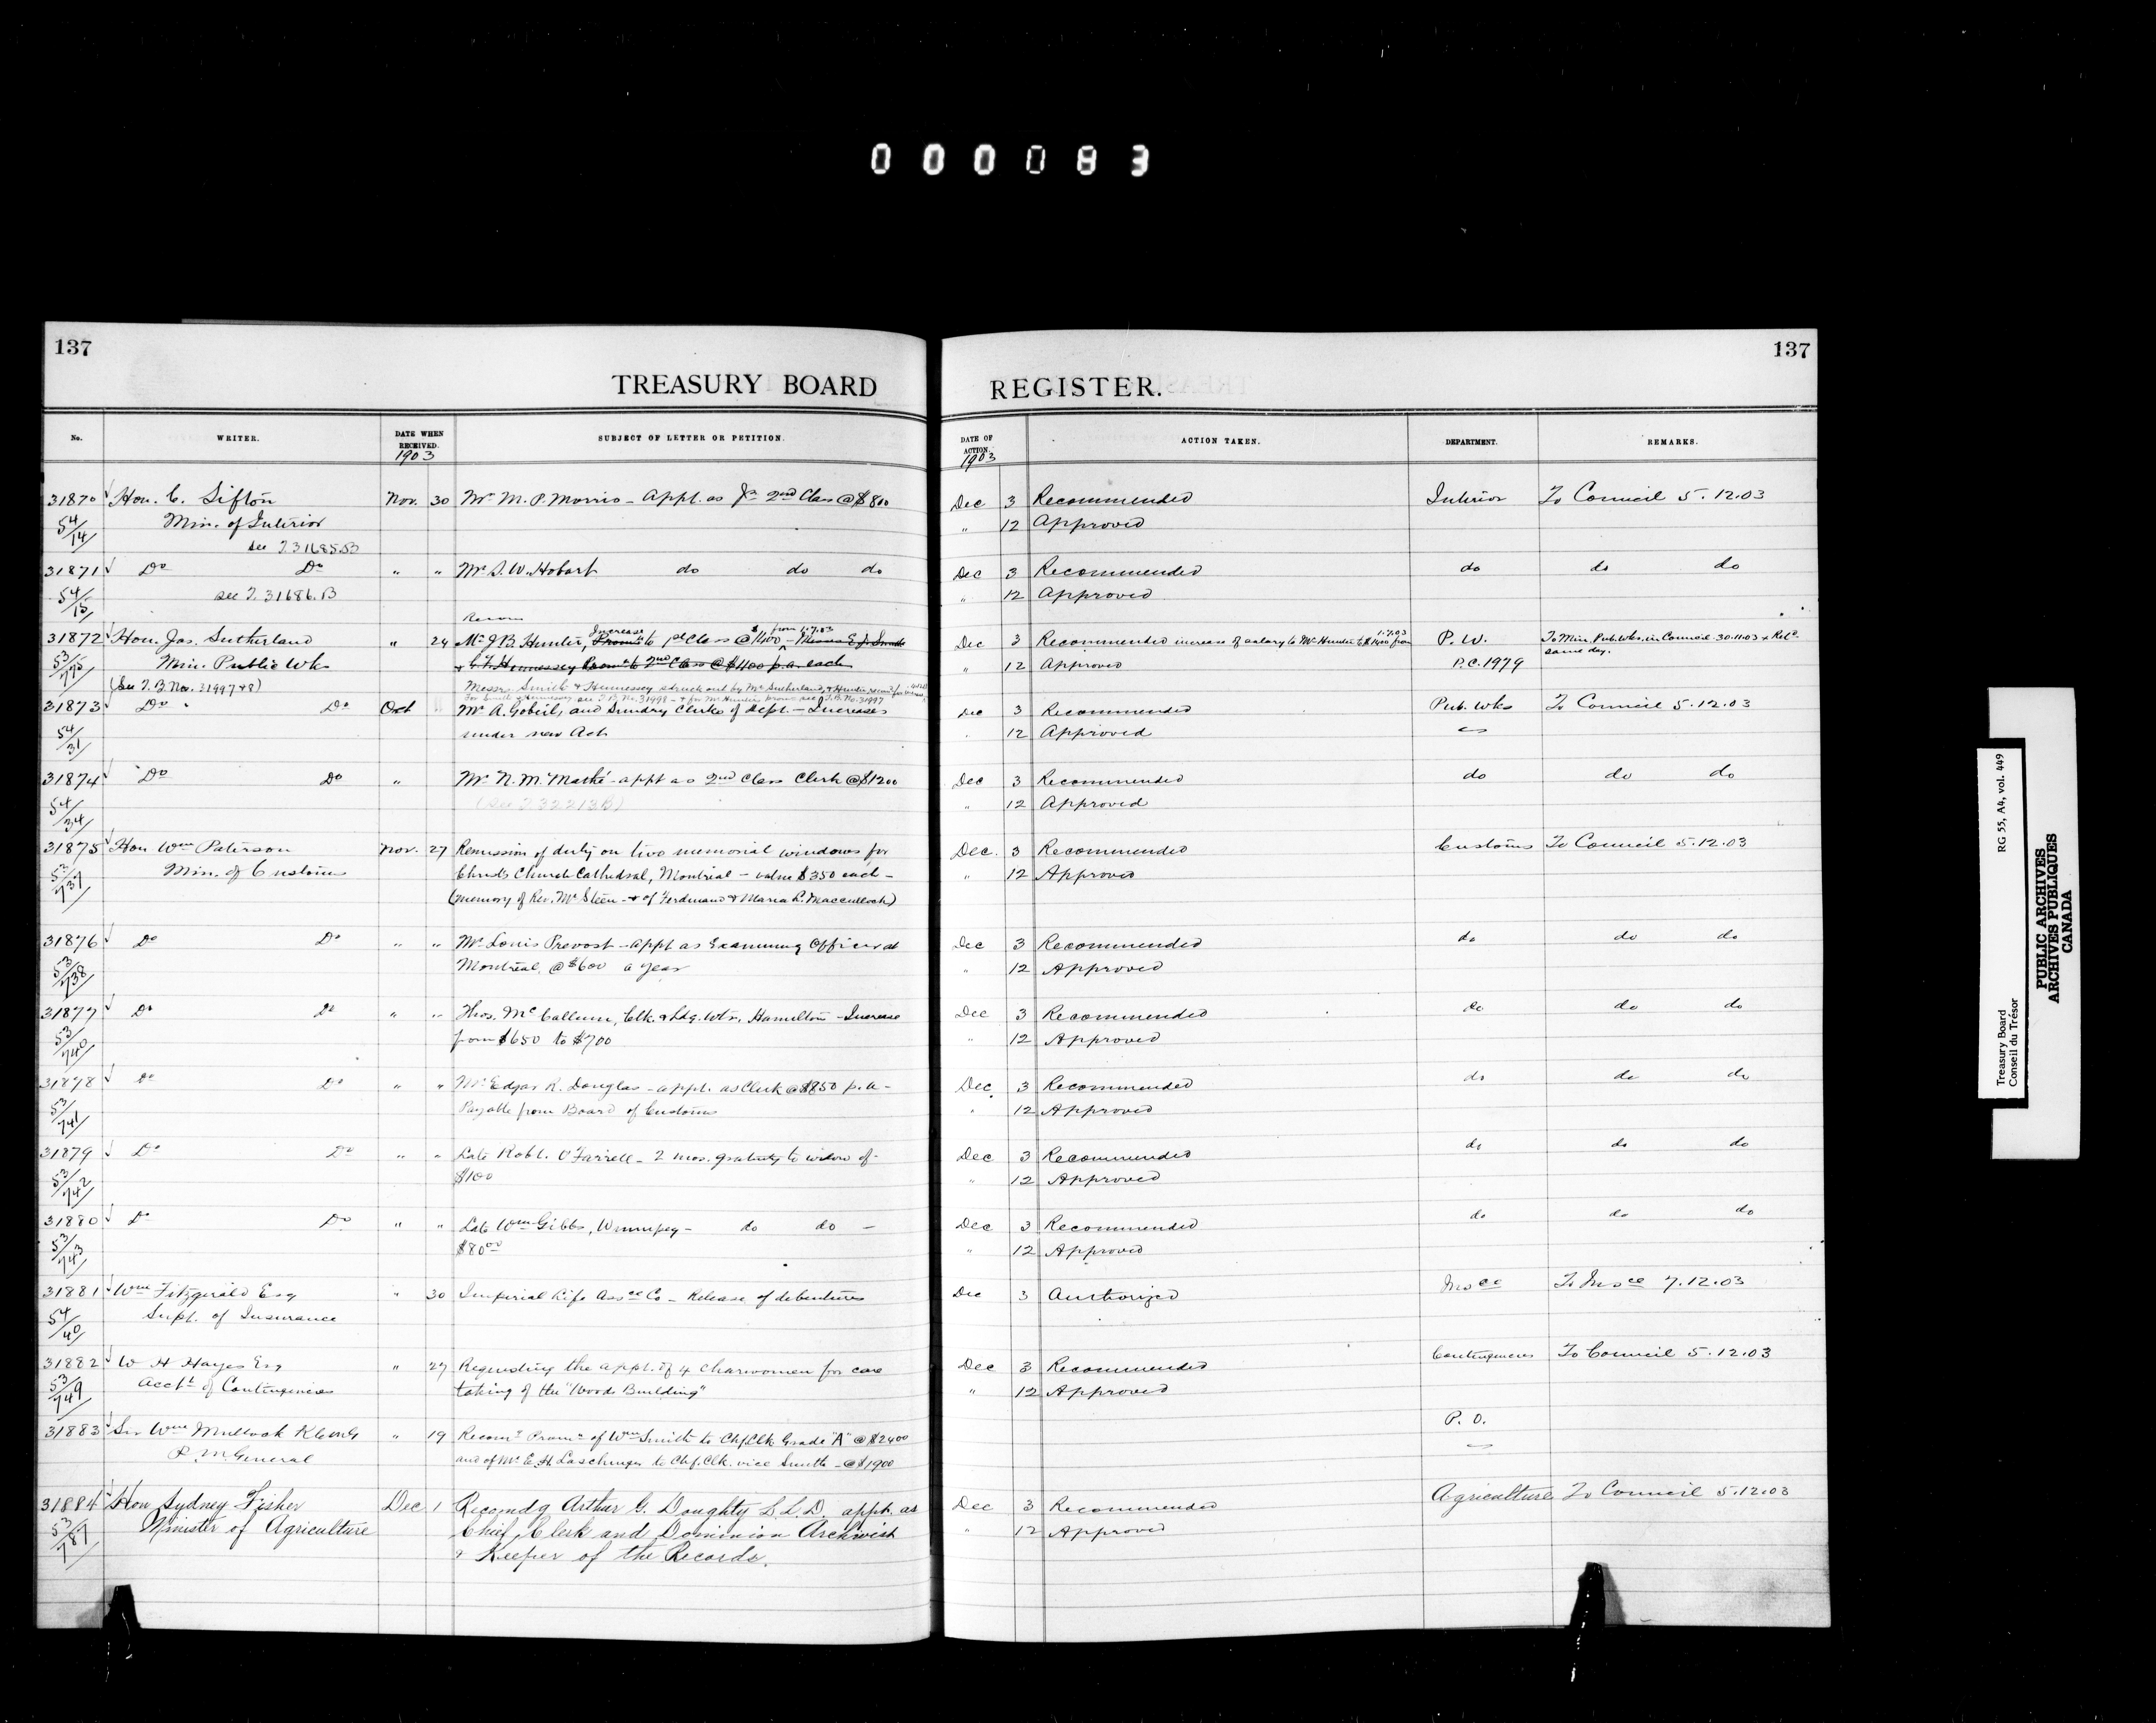 000083
137
TREASURY BOARD
No.
WRITER.
DATE WHEN RECEIVED.
1903
SUBJECT OF LETTER OR PETITION.
31870 Hon. C. Sifton Nov. 30 Mr M. P. Morris - Appt. as Jr 2nd Class @ $800
54/14 Min. of Interior
see T.31685B
31871 Do Do " " Mr S. W. Hobart do do do
54/15 see T. 31686.B
31872 Hon. Jas. Sutherland " 24 Mr J B. Hunter, Increase to 1st Class @ $1400 from 1.7.03 - Messrs E. Jr. Smith
53/775 Min. Public Wks & C. T. Hennessey Prom to 2nd Class @ $1100 p.a. each
(See T.B. Nos. 31997 & 8) Messrs Smith & Hennessey struck out by Mr Sutherland, & Hunter
For Smith & Hennessey see T.B. No. 31998 - & for Mr Hunter's prom see T.B. No. 31997
31873 Do Do Oct " Mr A. Gobeil, and Sundry Clerks of Dept. - Increases
54/31 under new Act
31874 Do Do " Mr N. M. Mathé - appt as 2nd Class Clerk @ $1200
54/34 (See T.32213B)
31875 Hon Wm Paterson Nov. 27 Remission of duty on two memorial windows for
53/737 Min. of Customs Christ Church Cathedral, Montreal - value $350 each -
(memory of Rev. Mr Steen - & of Ferdinand & Maria L. Macculloch)
31876 Do Do " " Mr Louis Prevost - appt as Examining Officer at
53/738 Montreal, @ $600 a year
31877 Do Do " " Thos. McCallum, Clk. & Ldg. Wtr. Hamilton - Increase
53/740 from $650 to $700
31878 Do Do " " Mr Edgar R. Douglas - appt. as Clerk @ $850 p.a -
53/741 Payable from Board of Customs
31879 Do Do " " Late Robt. O'Farrell - 2 mos. gratuity to widow of -
53/742 $100
31880 Do Do " " Late Wm Gibbs, Winnipeg - do do -
53/743 $80.00
31881 Wm Fitzgerald Esq " 30 Imperial Life Assce Co - Release of debentures
54/40 Supt. of Insurance
31882 W H Hayes Esq " 27 Requesting the appt. of 4 charwomen for care
53/749 Acct of Contingencies taking of the "Woods Building"
31883 Sir Wm Mullock KCMG " 19 Recomg Promn of Wm Smith to Chf. Clk Grade "A" @ $2400
P. M. General and of Mr E. H. Laschinger to Chf. Clk. vice Smith - @ $1900
31884 Hon Sydney Fisher Dec 1 Recomdg Arthur G. Doughty L.L.D. appt. as
53/787 Minister of Agriculture Chief Clerk and Dominion Archivist
& Keeper of the Records.
137
REGISTER.
DATE OF ACTION.
1903
ACTION TAKEN.
DEPARTMENT.
REMARKS.
Dec 3 Recommended Interior To Council 5.12.03
" 12 Approved
Dec 3 Recommended do do do
" 12 Approved
Dec 3 Recommended increase of salary to Mr Hunter to $1400 from 1.7.03 P. W. To Min. Pub. Wks. in Council 30.11.03 & Retd.
same day.
" 12 Approved P.C. 1979
Dec 3 Recommended Pub. Wks To Council 5.12.03
" 12 Approved
Dec 3 Recommended do do do
" 12 Approved
Dec. 3 Recommended Customs To Council 5.12.03
" 12 Approved
Dec 3 Recommended do do do
" 12 Approved
Dec 3 Recommended do do do
" 12 Approved
Dec 3 Recommended do do do
" 12 Approved
Dec 3 Recommended do do do
" 12 Approved
Dec 3 Recommended do do do
" 12 Approved
Dec 3 Authorized Insce To Insce 7.12.03
Dec 3 Recommended Contingencies To Council 5.12.03
" 12 Approved
P. O.
Dec 3 Recommended Agriculture To Council 5.12.03
" 12 Approved
Treasury Board RG 55, A4, vol. 449
Conseil du Trésor
PUBLIC ARCHIVES
ARCHIVES PUBLIQUES
CANADA